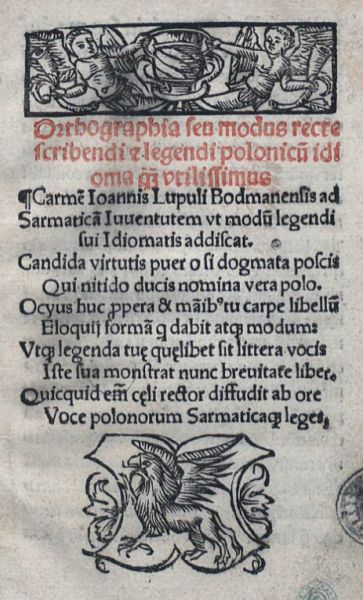 Orthographia seu modus recte
scribendi ⁊ legendi polonicū idi
oma q̄ꝫ vtilissimus
¶Carmē Ioannis Lupuli Bodmanensis ad
Sarmaticā Iuuentutem vt modū legendi
sui Idiomatis addiscat.
Candida virtutis puer o si dogmata poscis
Qui nitido ducis nomina vera polo.
Ocyus huc ꝓpera & māibꝰ tu carpe libellū
Eloquij formā q dabit atqꝫ modum:
Vtqꝫ legenda tuę quęlibet sit littera vocis
Iste sua monstrat nunc breuitate liber,
Quicquid em̄ cęli rector diffudit ab ore
Voce polonorum Sarmaticaqꝫ leges,